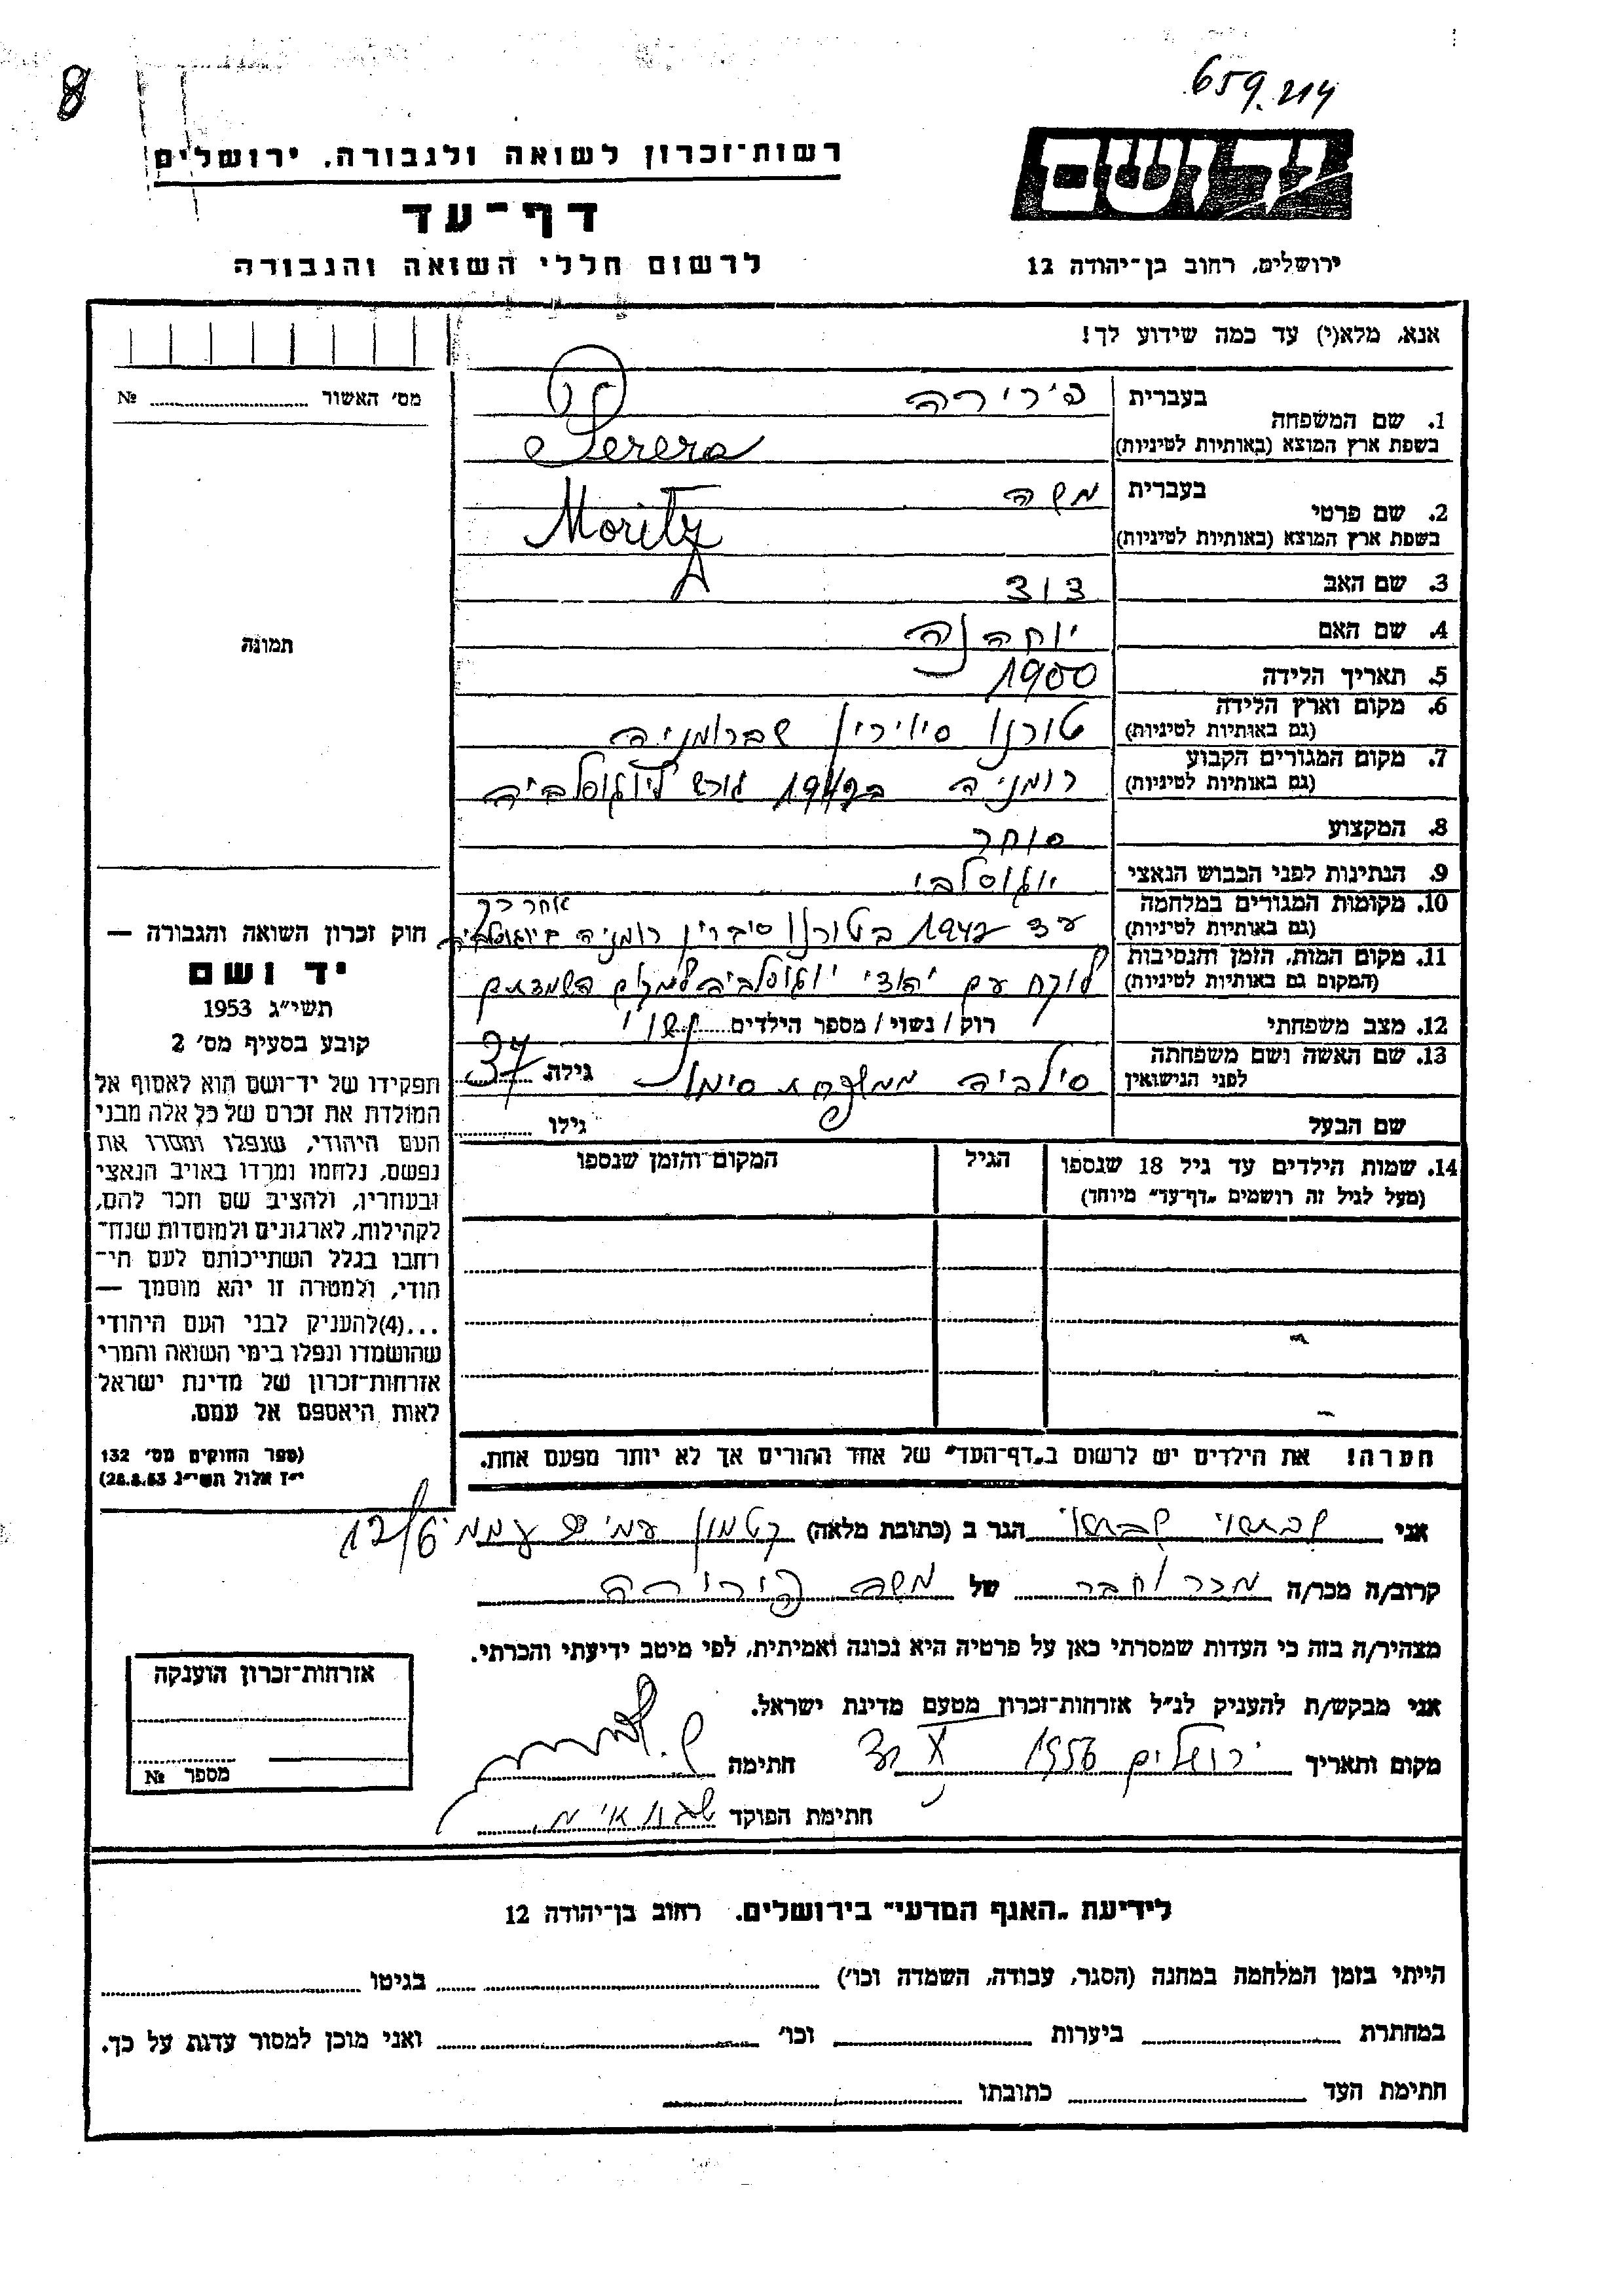 8
659.214
רשות־זכרון לשואה ולגבורה. ירושלים
יד ושם
דף־עד
לרשום חללי השואה והגבורה
ירושלים, רחוב בן־יהודה 12
אנא, מלא(י) עד כמה שידוע לך!
מס׳ האשור № 
1. שם המשפחה
בעברית פירירה
בשפת ארץ המוצא (באותיות לטיניות) Perera
2. שם פרטי
בעברית משה
בשפת ארץ המוצא (באותיות לטיניות) Moritz
A
3. שם האב דוד
4. שם האם
5. תאריך הלידה 1900
6. מקום וארץ הלידה
(גם באותיות לטיניות) טורנו סיוירין שברומניה
7. מקום המגורים הקבוע
(גם באותיות לטיניות) רומניה ב1942 גורש ליוגוסלביה
8. המקצוע סוחר
9. הנתינות לפני הכבוש הנאצי יוגוסלבי
10. מקומות המגורים במלחמה אחר כך
(גם באותיות לטיניות) עד 1942 בטורנו סיברין רומניה ביוגוסלביה
11. מקום המות, הזמן והנסיבות
(המקום גם באותיות לטיניות) לוקח עם יהודי יוגוסלביה למקום השמדתם
12. מצב משפחתי רוק / נשוי / מספר הילדים נשוי
13. שם האשה ושם משפחתה
לפני הנישואין סילביה ממשפחת גילה 37
שם הבעל גילו
14. שמות הילדים עד גיל 18 שנספו הגיל המקום והזמן שנספו
(מעל לגיל זה רושמים „דף־עד״ מיוחד)
הערה! את הילדים יש לרשום ב„דף־העד״ של אחד ההורים אך לא יותר מפעם אחת.
תמונה
חוק זכרון השואה והגבורה —
יד ושם
תשי״ג 1953
קובע בסעיף מס׳ 2
תפקידו של יד־ושם הוא לאסוף אל
המולדת את זכרם של כל אלה מבני
העם היהודי, שנפלו ומסרו את
נפשם, נלחמו ומרדו באויב הנאצי
ובעוזריו, ולהציב שם וזכר להם,
לקהילות, לארגונים ולמוסדות שנח־
רבו בגלל השתייכותם לעם הי־
הודי, ולמטרה זו יהא מוסמך —
...(4)להעניק לבני העם היהודי
שהושמדו ונפלו בימי השואה והמרי
אזרחות־זכרון של מדינת ישראל
לאות היאספם אל עמם.
(ספר החוקים מס׳ 132
י״ז אלול תשי״ג 28.8.53)
אני שבתאי הגר ב (כתובת מלאה) קטמון 12/6
קרוב/ה מכר/ה מכר וחבר של משה פירירה
מצהיר/ה בזה כי העדות שמסרתי כאן על פרטיה היא נכונה ואמיתית, לפי מיטב ידיעתי והכרתי.
אני מבקש/ת להעניק לנ״ל אזרחות־זכרון מטעם מדינת ישראל.
מקום ותאריך ירושלים 1956 X חתימה
חתימת הפוקד
אזרחות־זכרון הוענקה
מספר №
לידיעת „האגף המדעי״ בירושלים. רחוב בן־יהודה 12
הייתי בזמן המלחמה במחנה (הסגר, עבודה, השמדה וכו׳) בגיטו
במחתרת ביערות וכו׳ ואני מוכן למסור עדות על כך.
חתימת העד כתובתו